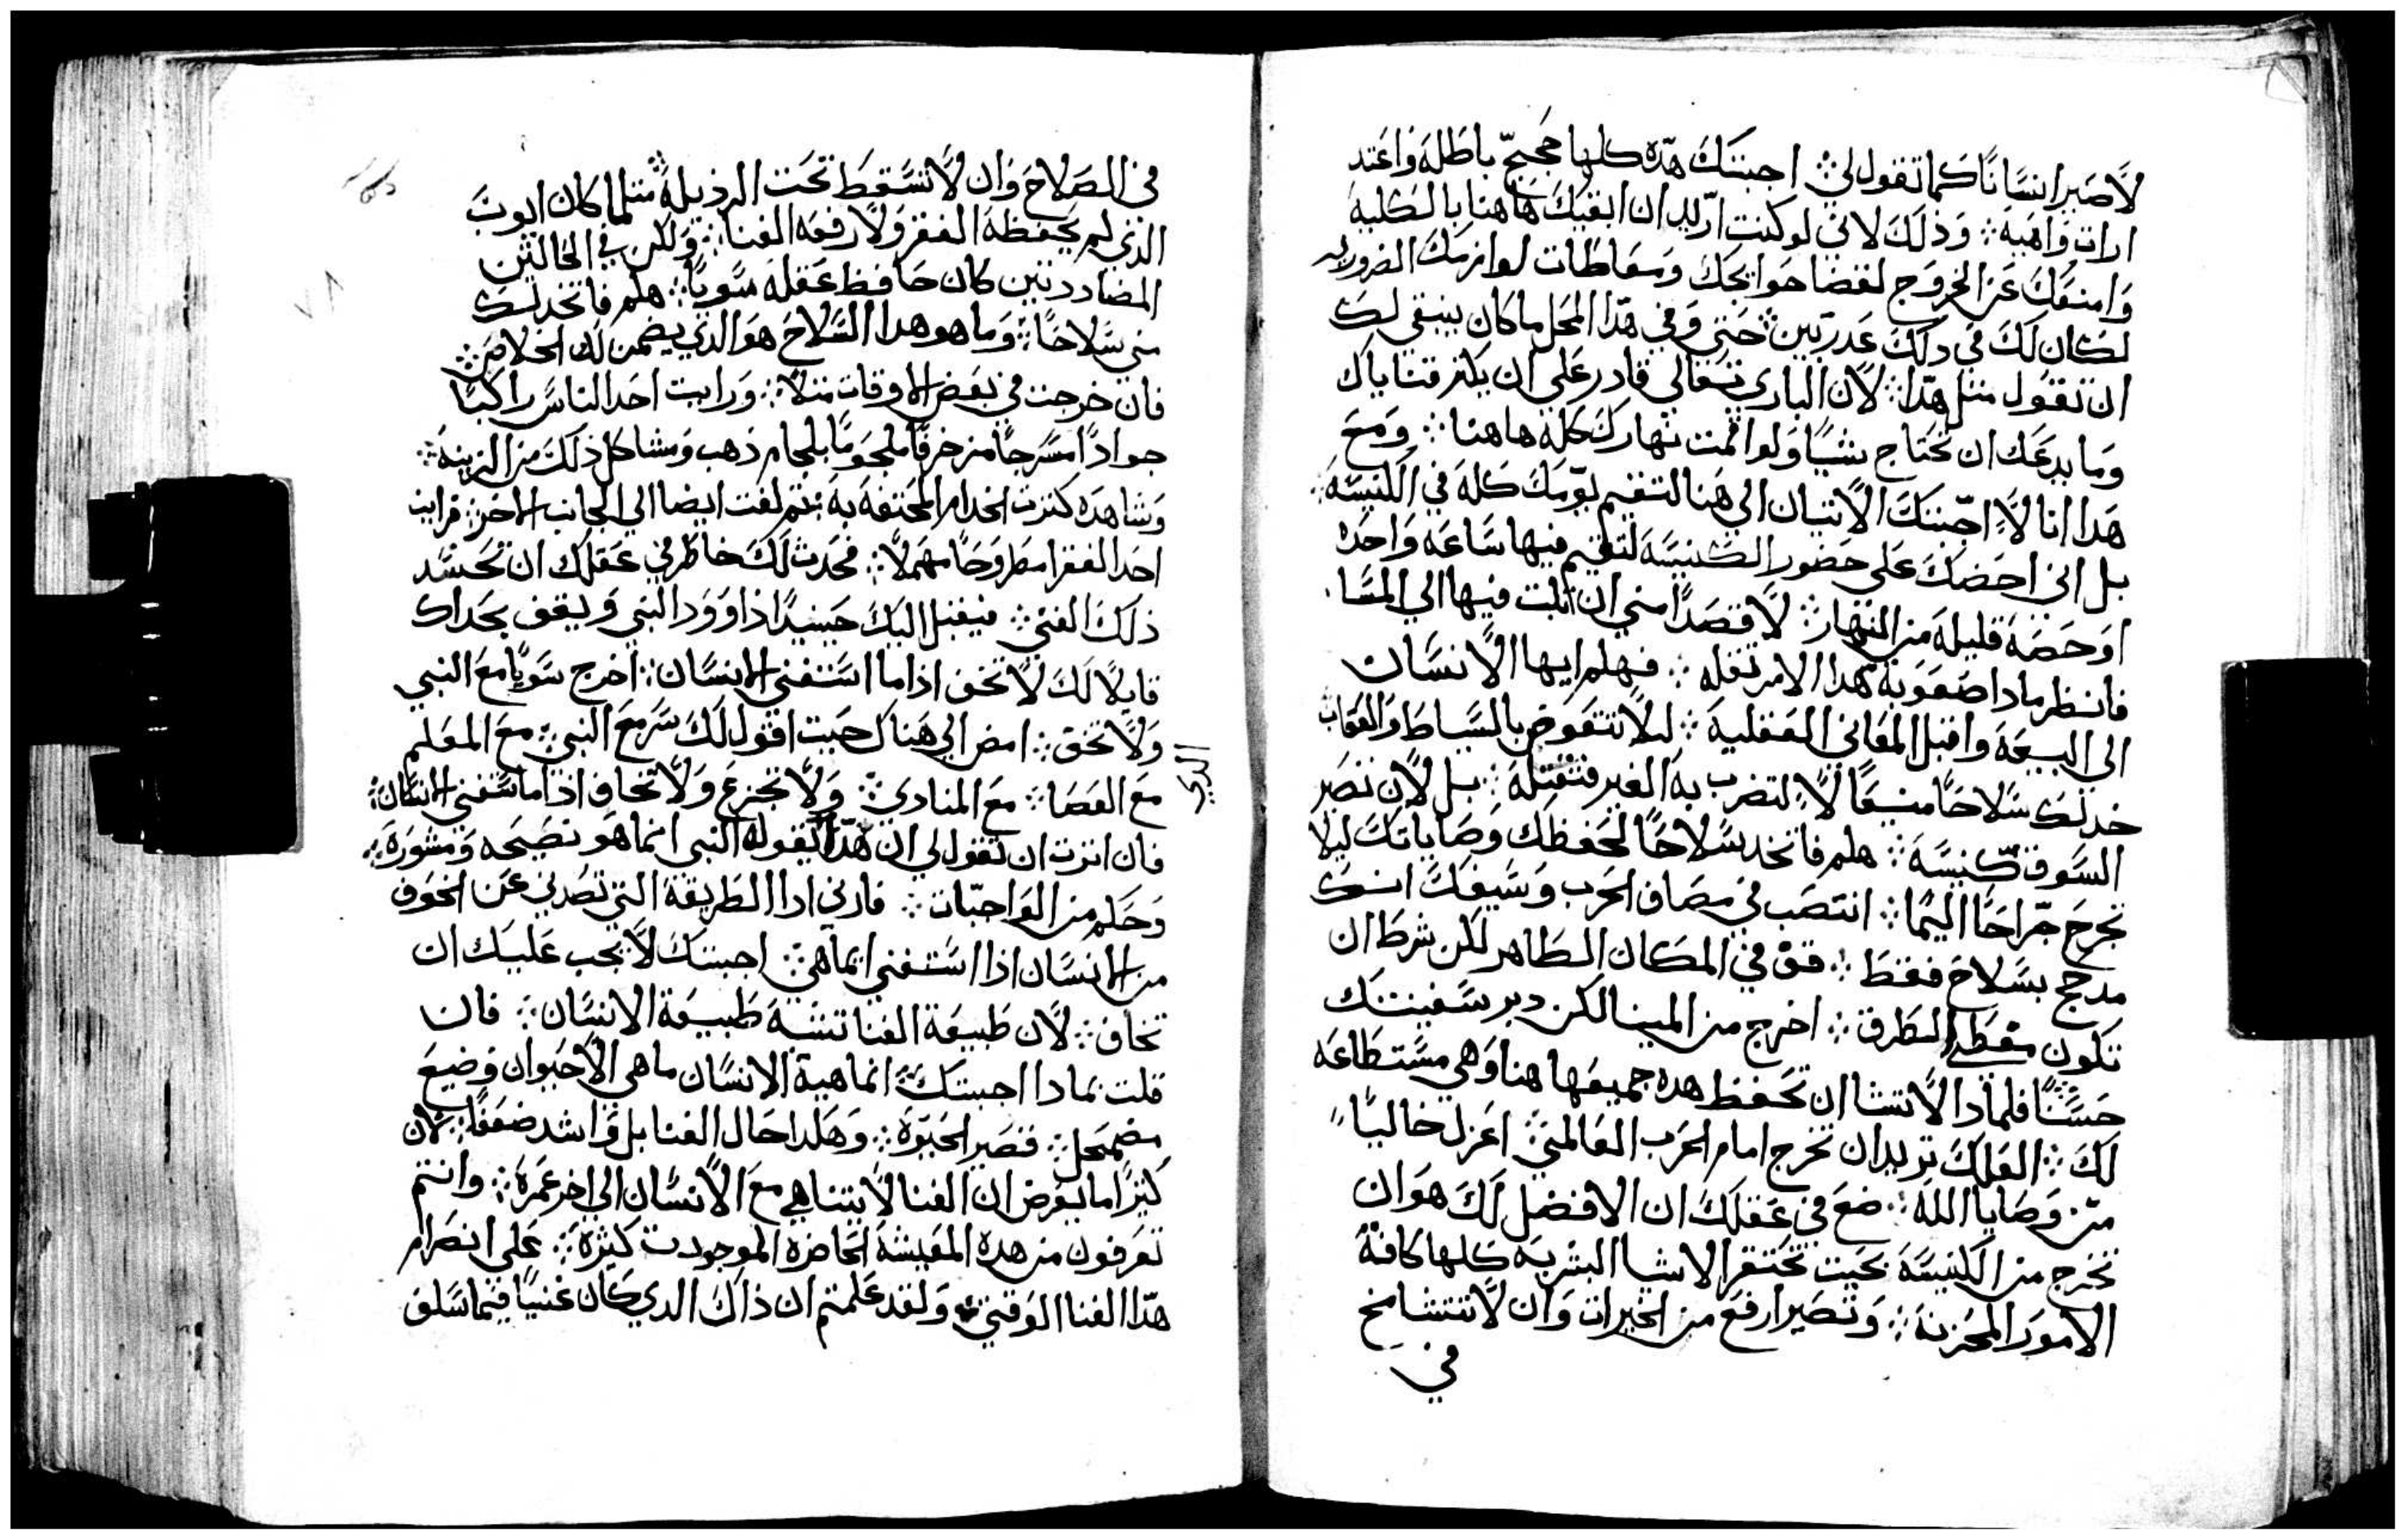 لاصير انسانا كما تقول لي ⁘ اجبتك هذه كلها حجج باطله واعتد
ارات واهية ⁘ وذلك لاني لو كنت اريد ان ابقيك هاهنا بالكليه
وامنعك عن الخروج لقضا حوايجك وسقاطات لوازمك الضروريه
لكان لك في دلك عدر بين ⁘ حتى وفي هدا المحل ما كان ينبغي لك
ان تقول متل هدا ⁘ لان الباري تعالى قادر على ان يكتر قناياك
وما يدعك ان تحتاج شيا ولو اقمت نهارك كله هاهنا ⁘ ومع
هدا انا لا احتك الاتيان الى هنا لتقيم يومك كله في الكنيسه ⁘
بل اني احضك على حضور الكنيسه لتقيم فيها ساعه واحده
او حصه قليله من النهار ⁘ لا قصدا مني ان تلبت فيها الى المسا
فانظر مادا صعوبة هدا الامر تقله ⁘ فهلم ايها الانسان
الى البيعه واقبل المعاني العقليه ⁘ ليلا تتعوض بالسياط والعقاب
خد لك سلاحا منيعا لا لتضرب به الغير فتقتله ⁘ بل لان تصر
السوق كنيسه ⁘ هلم فاتخد سلاحا لتحفظك وصاياتك ليلا
تجرح جراحا اليما ⁘ انتصب في مصاف الحرب وسيفك انك
مدجج بسلاح فقط ⁘ قف في المكان الطاهر لكن شرط ان
تكون الطرق ⁘ اخرج من المينا لكن دبر سفينتك
حسنا فلمادا لا تشا ان تحفظ هده جميعها هنا وهي مستطاعه
لك ⁘ العلك تريد ان تخرج امام الحرب العالمي ⁘ اعزل خاليا
من وصايا الله ⁘ ضع في عقلك ان الافضل لك هو ان
تخرج من الكنيسه بحيت تحتقر الاشيا البشريه كلها كافة
الامور المحزنه ⁘ وتصير ارفع من الخيرات وان لا تتشامخ
في
في الصلاح وان لا تسقط تحت الرذيلة ⁘ متلما كان ايوب
الذي لم يحفظه الفقر ولا رفعه الغنا ⁘ ولكن في الحالتين
المضاددتين كان حافظ عقله سويا ⁘ هلم فاتخد لك
مني سلاحا ⁘ وما هو هدا السلاح هو الدي يضمن لك الخلاص ⁘
فان خرجت في بعض الاوقات متلا ⁘ ورايت احد الناس راكبا
جوادا مسرجا مزخرفا ملجوما بلجام ذهب ومشاكل ذلك من الزينه ⁘
وشاهده كترت الخدام المحتفه به ⁘ تم لفت ايضا الى الجانب الاخر ⁘ فرايت
احد الفقرا مطروحا مهملا ⁘ فحدث لك خاطر في عقلك ان تحسد
ذلك الغني ⁘ فيقبل اليك حينيدا داوود النبي ويقف بحداك
قايلا لك لا تخف اذا ما استغنى الانسان ⁘ اخرج سويا مع النبي
ولا تخف ⁘ امض الى هناك حيت اقول لك سر مع النبي ⁘ مع المعلم
مع العصا ⁘ مع المنادي ⁘ ولا تجزع ولا تخاف اذا ما استغنى الانسان ⁘
الدي
فان اترت ان تقول لي ان هدا يقوله النبي انما هو نصيحه ومشوره ⁘
وحلم من الواجبات ⁘ فارني ادا الطريقة التي تصدني عن الخوف
من الانسان اذا استغنى انما هي ⁘ اجبتك لا يجب عليك ان
تخاف ⁘ لان طبيعة الغنا تشبه طبيعة الانسان ⁘ فان
قلت بمادا اجبتك ⁘ انما هية الانسان ما هي الا حيوان وضيع
مضمحل ⁘ قصير الحيوة ⁘ وهكدا حال الغنا بل واشد ضعفا ⁘ لان
كثيرا ما يعرض ان الغنا لا يتناهي مع الانسان الى اخر عمره ⁘ وانتم
تعرفون من هده المعيشه الحاضره الموجودت كثره ⁘ على انصرام
هدا الغنا الوقتي ⁘ ولقد علمتم ان ذاك الدي كان غنيا فيما سلف